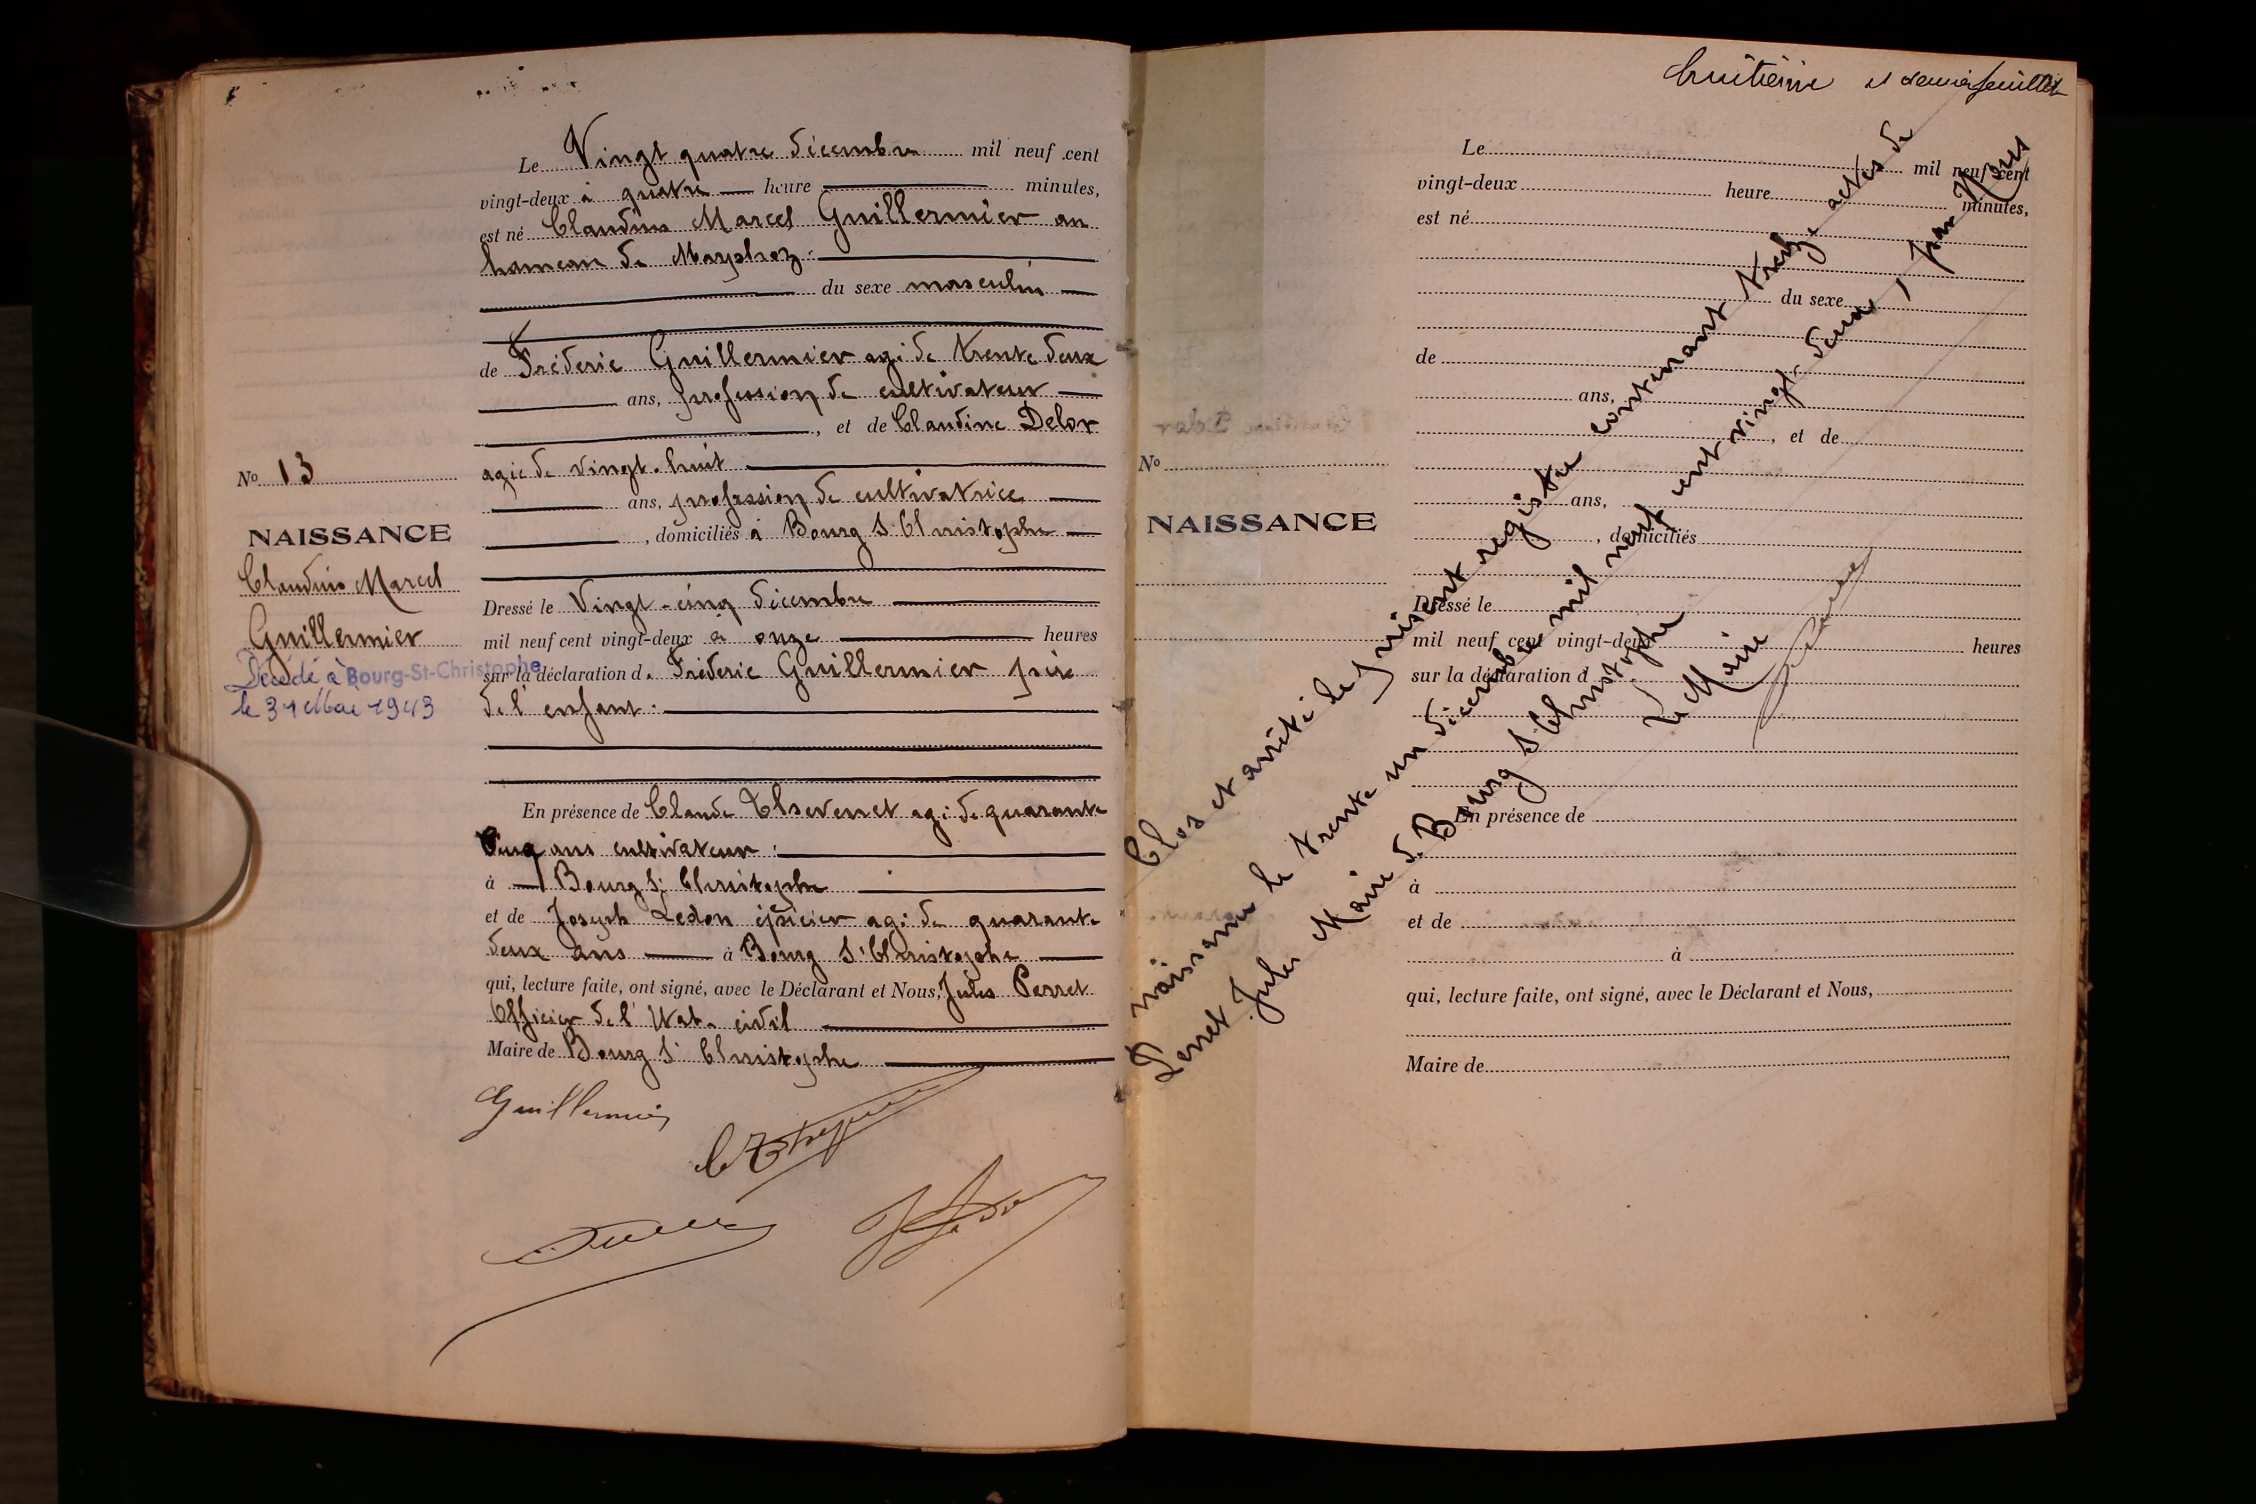 Le Vingt quatre décembre mil neuf cent
vingt-deux à quatre heure minutes,
est né Claudius Marcel Guillermier au
hameau de
du sexe masculin
de Fréderic Guillermier agé de trente deux
ans, profession de cultivateur
, et de Claudine Delor
agée de vingt-huit
ans, profession de cultivatrice
, domiciliés à Bourg St Christophe
No 13
NAISSANCE
Claudius Marcel
Guillermier
Décédé à Bourg-St-Christophe
le 31 Mai 1943
Dressé le Vingt-cinq décembre
mil neuf cent vingt-deux à onze heures
sur la déclaration de Fréderic Guillermier père
de l'enfant.
En présence de Claude Thevenet agé de quarante
cinq ans cultivateur
à Bourg St Christophe
et de Joseph Ledon épicier agé de quarante
deux ans à Bourg St Christophe
qui, lecture faite, ont signé, avec le Déclarant et Nous, Jules Perret
Officier de l'Etat civil
Maire de Bourg St Christophe
Guillermier
huitième et dernier feuillet
Le mil neuf cent
vingt-deux heure minutes,
est né
du sexe
de
ans,
, et de
No
ans,
NAISSANCE
, domiciliés
Dressé le
mil neuf cent vingt-deux heures
sur la déclaration d
En présence de
à
et de
à
qui, lecture faite, ont signé, avec le Déclarant et Nous,
Maire de
Clos et arrêté le présent registre contenant treize actes de
naissance le trente un décembre mil neuf cent vingt-deux, par Nous
Perret Jules Maire de Bourg St Christophe
Le Maire